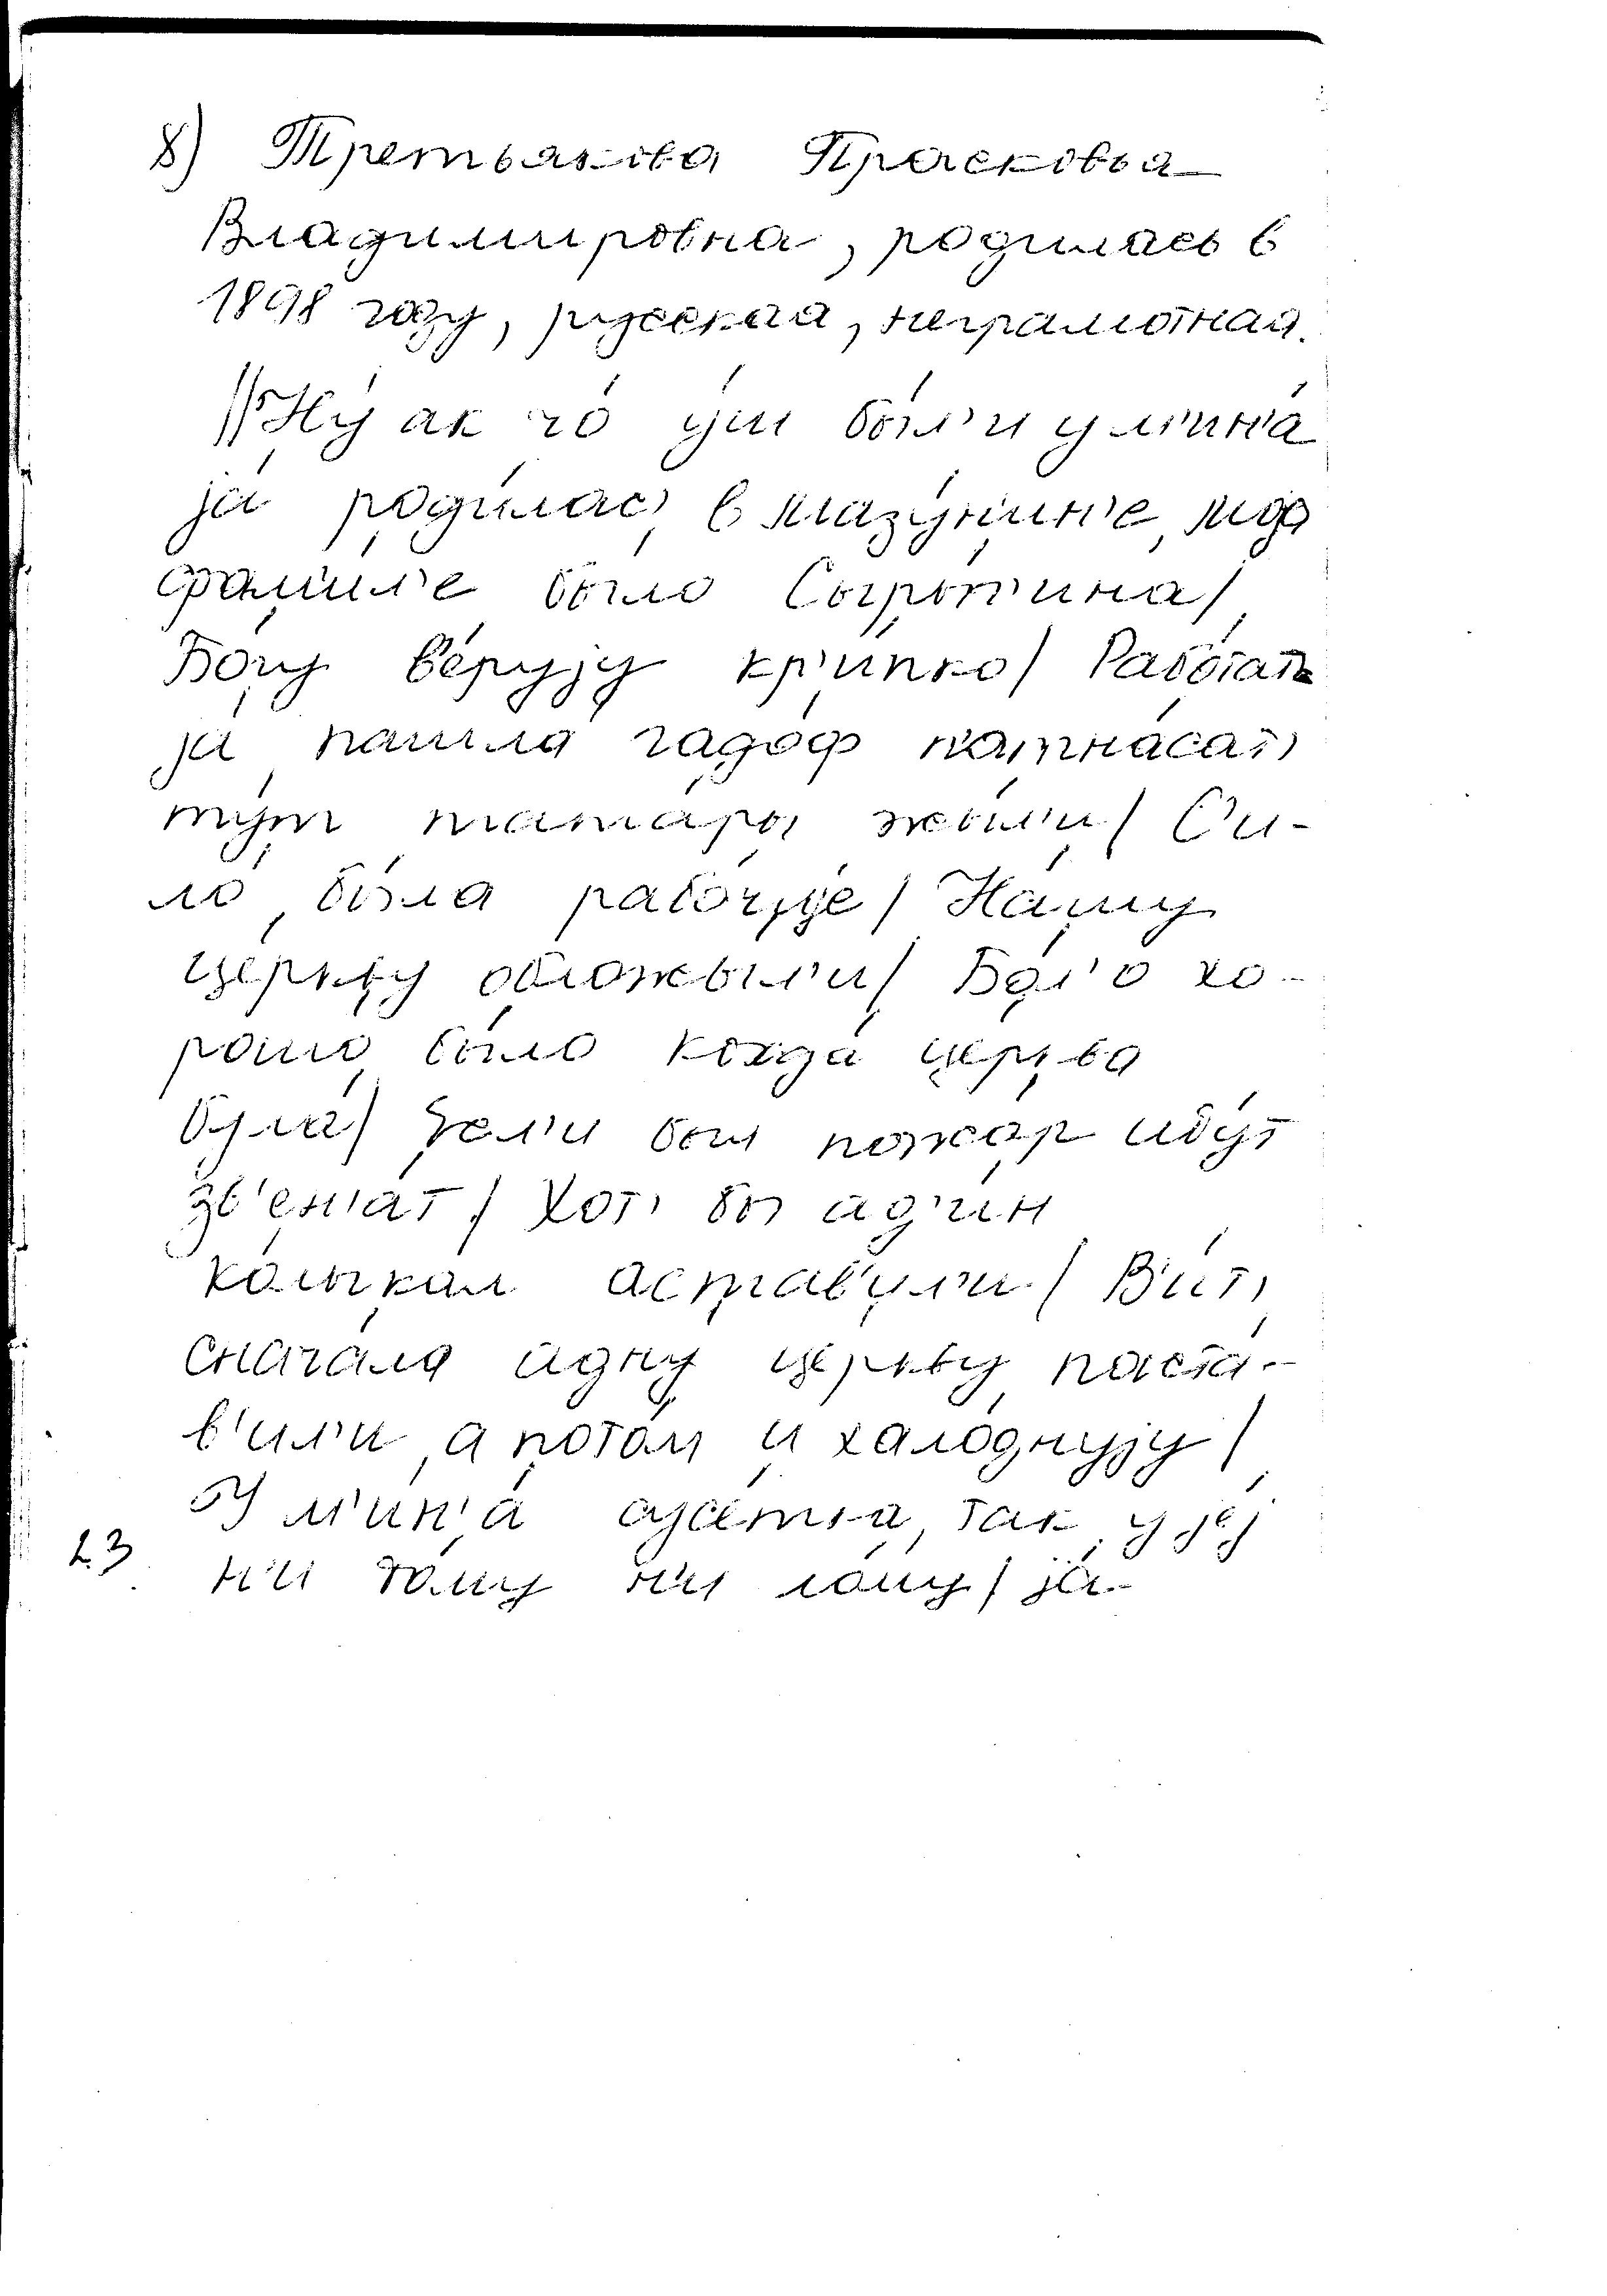 8) Третьякова Прасковья
Владимировна, родилась в
1898 году, русская, неграмотная.
// Ну́ ак чо́ у́ш бы́л'и у м'ин'а́
jа́ роди́лас' в Мазу́н'ин'е,
фами́л'е бы́ло Сыро́п'ина /
Бо́гу ве́руjу кр'и́пко / Рабо́тат'
jа́ пашла́ гадо́ф п'атна́сат'
ту́т тата́ры жы́л'и / С'и-
ло́ бы́ла рабо́ч'jе / На́шу
це́ркву обложы́л'и / Бо́л'о хо-
рошо́ бы́ло когда́ це́рква
була́ / Jе́сл'и был пожа́р иду́т
зв'ен'а́т / Хот' бы ад'и́н
ко́лыкал аста́в'ул'и / В'ит'
снача́ла адну́ це́ркву паста́-
в'ил'и, а пото́м и хало́днуjу /
У м'ин'а́ сусе́тка, так у jе́j
н'и до́му н'и ло́му / jа́-
23